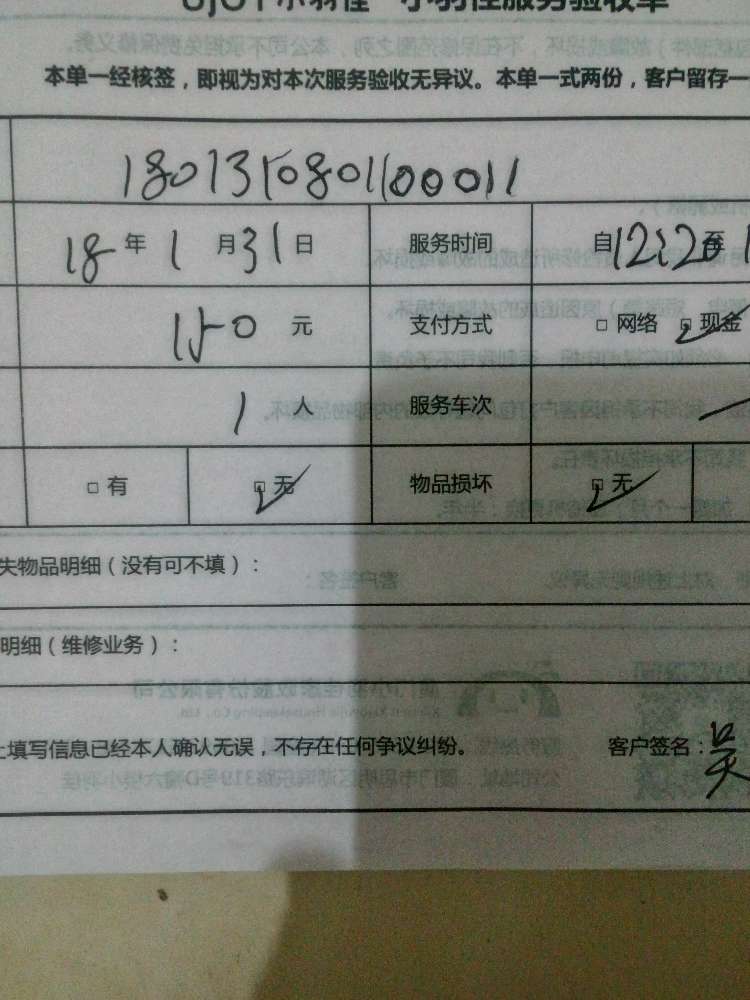 小羽佳服务验收单
本单一经核签，即视为对本次服务验收无异议。本单一式两份，客户留存一
180131080110001​1
18年1月31日 服务时间 自12:20至1
150元 支付方式 □网络 ☑现金
1人 服务车次
□有 ☑无 物品损坏 ☑无
失物品明细（没有可不填）：
明细（维修业务）：
上填写信息已经本人确认无误，不存在任何争议纠纷。 客户签名：吴